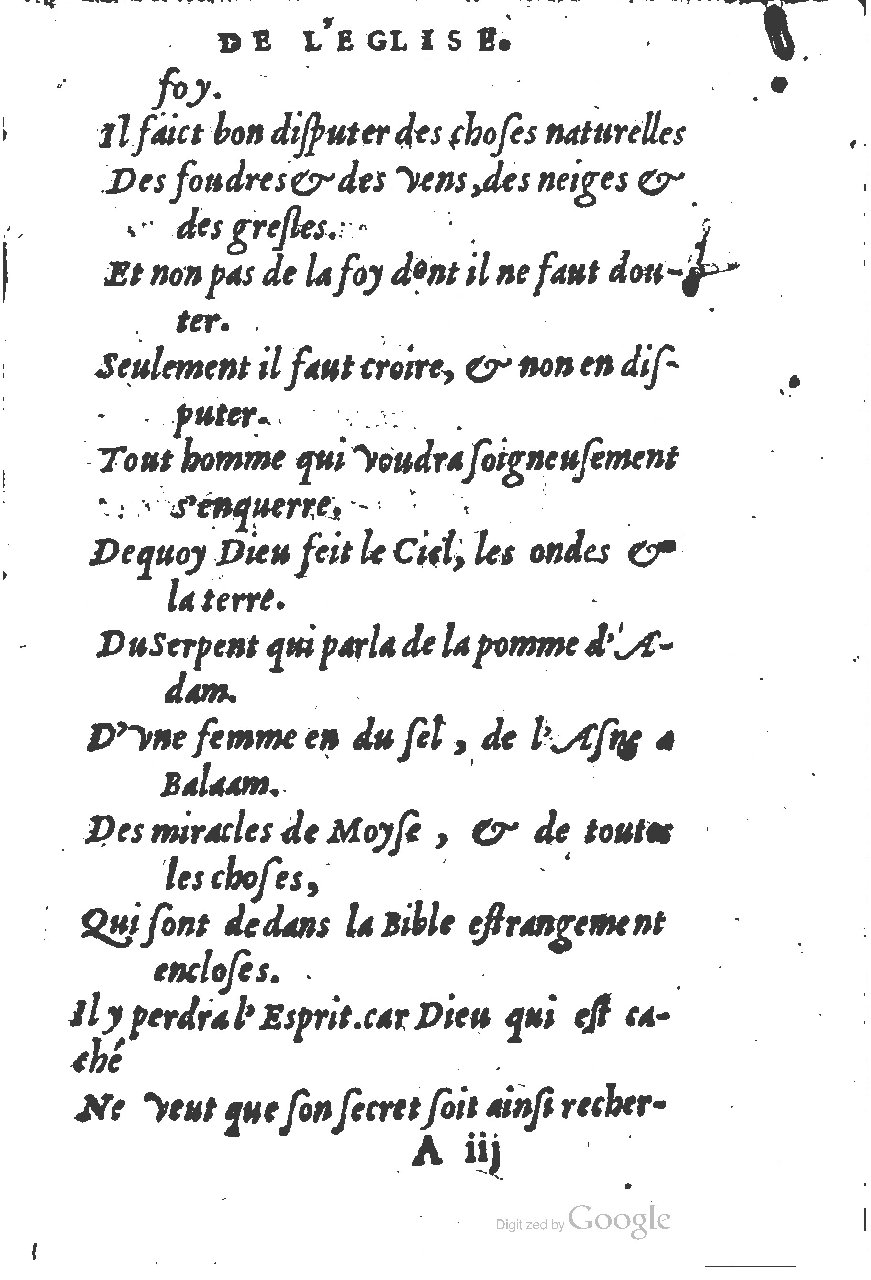 DE L'EGLISE.
foy.
Il faict bon diſputer des choſes naturelles
Des foudres & des vens, des neiges &
des greſles.
Et non pas de la foy dont il ne faut dou-
ter.
Seulement il faut croire, & non en diſ-
puter.
Tout homme qui voudra ſoigneuſement
s'enquerre,
De quoy Dieu feit le Ciel, les ondes &
la terre.
Du Serpent qui parla de la pomme d'A-
dam.
D'vne femme en du ſel, de l'Aſne a
Balaam.
Des miracles de Moyſe, & de toutes
les choſes,
Qui ſont dedans la Bible eſtrangement
encloſes.
Il y perdra l'Esprit. car Dieu qui eſt ca-
ché
Ne veut que ſon ſecret ſoit ainſi recher-
A iij
Digitized by Google